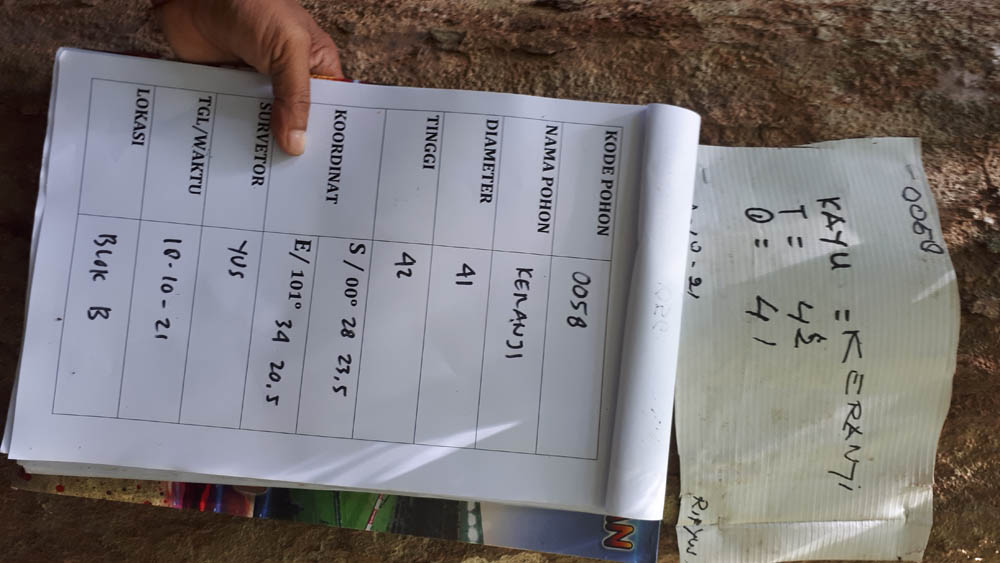 0058
KAYU = KERANJI
T = 42
= 41
10-21
RIFYUS
AN
KODE POHON 0058
NAMA POHON KERANJI
DIAMETER 41
TINGGI 42
KOORDINAT S / 00° 28 23,5
E/ 101° 34 20,5
SURVETOR YUS
TGL/WAKTU 18-10-21
LOKASI Blok B